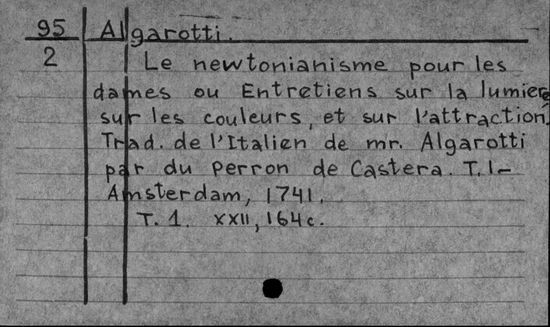 95 Algarotti.
2 Le newtonianisme pour les
dames ou Entretiens sur la lumiere
sur les couleurs, et sur l'attraction.
Trad. de l'Italien de mr. Algarotti
par du Perron de Castera. T. 1-
Amsterdam, 1741.
T. 1. XXII, 164 c.